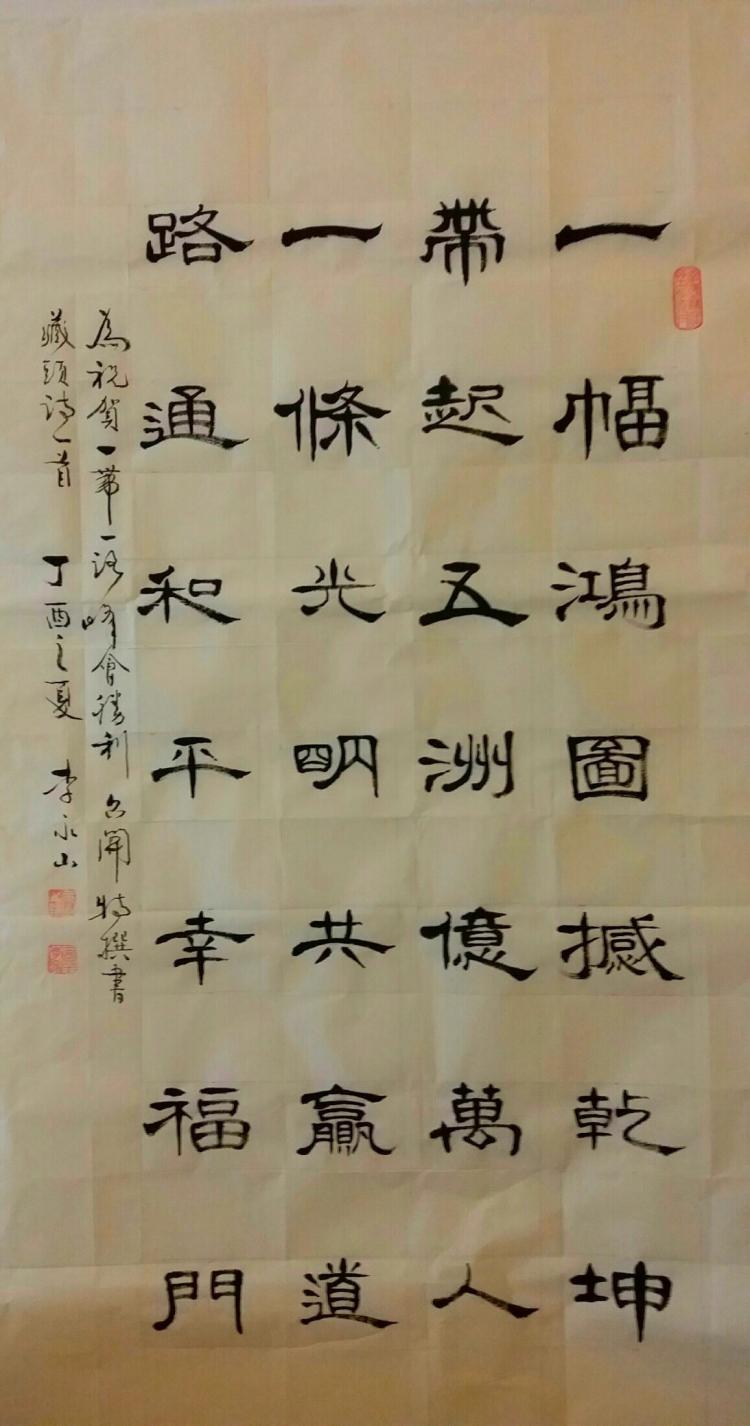 一幅鴻圖撼乾坤
帶起五洲億萬人
一條光明共贏道
路通和平幸福門
為祝賀一帶一路峰會勝利召開特撰書
藏頭詩一首 丁酉之夏 李永山